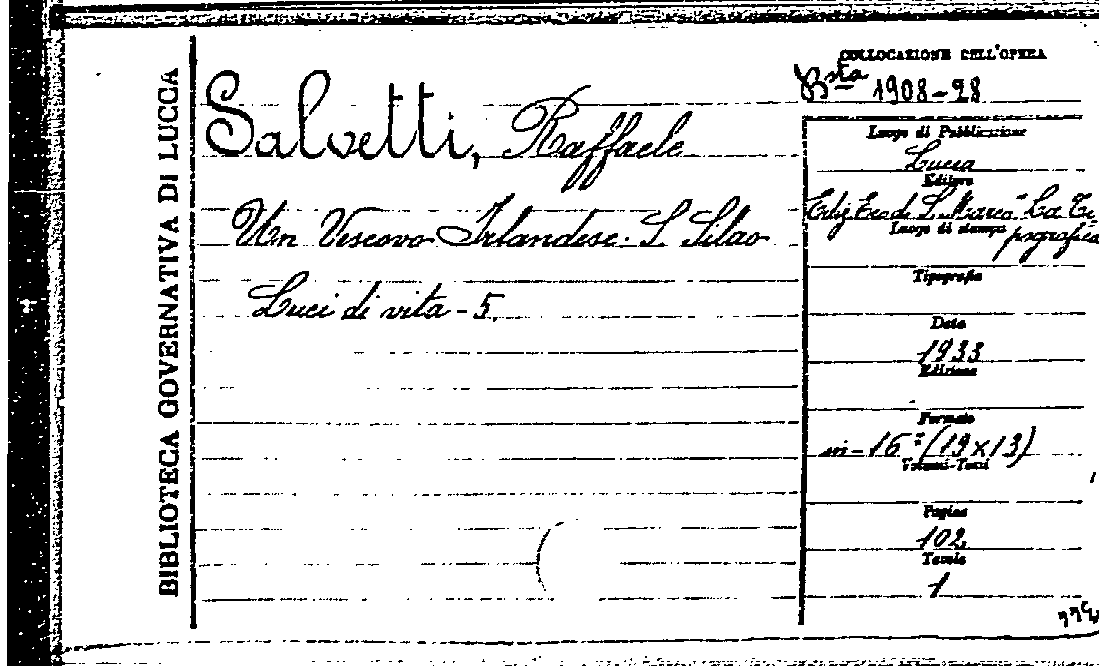 BIBLIOTECA GOVERNATIVA DI LUCCA
Salvetti, Raffaele
Un Vescovo Irlandese: S. Silao
Luci di vita - 5.
COLLOCAZIONE DELL'OPERA
Bsta 1908-28
Luogo di Pubblicazione
Lucca
Editore
S. Marco "La Ti-
Luogo di stampa
pografica
Tipografia
Data
1933
Edizione
Formato
in-16° (19x13)
Volumi-Tomi
Pagine
102
Tavole
1